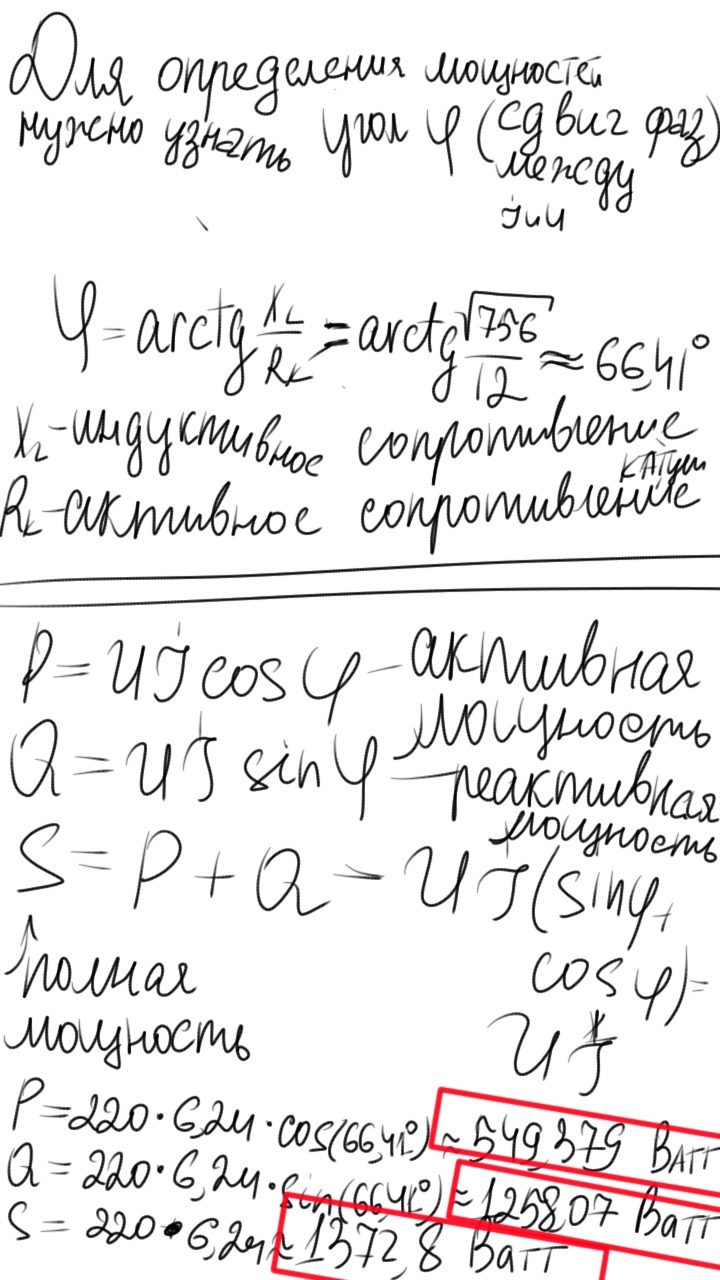 Для определения мощностей
нужно узнать угол φ (сдвиг фаз)
между
I и U
φ = arctg X_L/R_K = arctg √756/12 ≈ 66,41°
X_L - индуктивное сопротивление
катуш
R_K - активное сопротивление
P = UI cos φ - активная
мощность
Q = UI sin φ - реактивная
мощность
S = P + Q - UI (sin φ +
cos φ) =
полная
мощность
UI
P = 220 · 6,24 · cos(66,41°) ≈ 549,379 Ватт
Q = 220 · 6,24 · sin(66,41°) ≈ 1258,07 Ватт
S = 220 · 6,24 ≈ 1372,8 Ватт